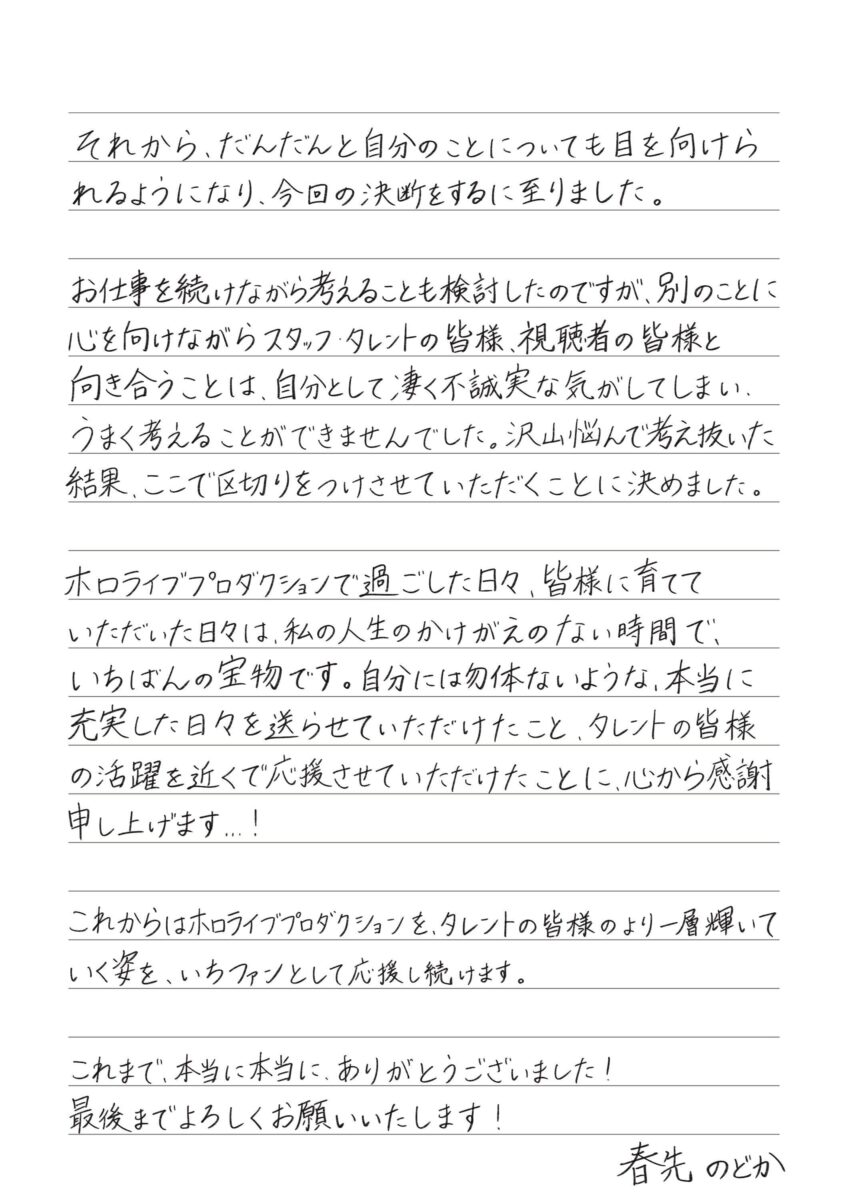 それから、だんだんと自分のことについても目を向けら
れるようになり、今回の決断をするに至りました。
お仕事を続けながら考えることも検討したのですが、別のことに
心を向けながらスタッフ・タレントの皆様、視聴者の皆様と
向き合うことは、自分として凄く不誠実な気がしてしまい、
うまく考えることができませんでした。沢山悩んで考え抜いた
結果、ここで区切りをつけさせていただくことに決めました。
ホロライブプロダクションで過ごした日々、皆様に育てて
いただいた日々は、私の人生のかけがえのない時間で、
いちばんの宝物です。自分には勿体ないような、本当に
充実した日々を送らせていただけたこと、タレントの皆様
の活躍を近くで応援させていただけたことに、心から感謝
申し上げます...!
これからはホロライブプロダクションを、タレントの皆様のより一層輝いて
いく姿を、いちファンとして応援し続けます。
これまで、本当に本当に、ありがとうございました!
最後までよろしくお願いいたします!
春先 のどか